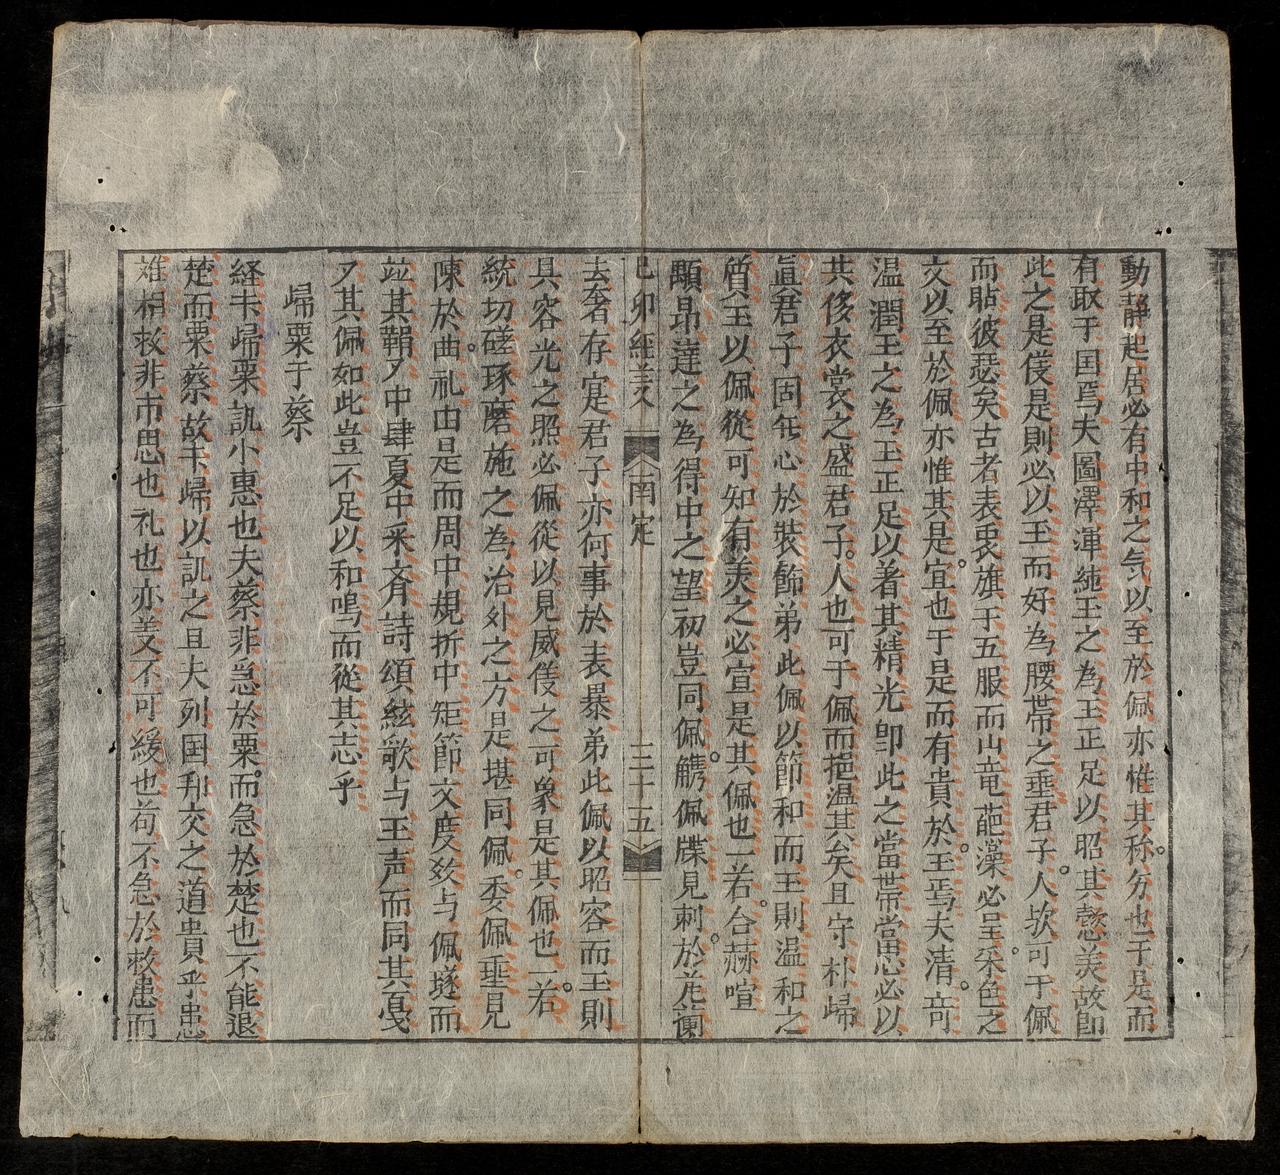 動静起居必有中和之気以至於佩亦惟其称方也于是而
有取于国焉夫圖澤渾純玉之為玉正足以昭其懿美故即
此之是儀是則必以玉而好為腰帶之垂君子人欤可于佩
而貼彼瑟矣古者表衷旗于五服而山竜葩藻必呈采色之
文以至於佩亦惟其是宜也于是而有貴於玉焉夫清奇
温潤玉之為玉正足以著其精光即此之當帶當思必以
共侈衣裳之盛君子人也可于佩而挹温其矣且守朴歸
眞君子固無心於裝飾弟此佩以節和而玉則温和之
質玉以佩從可知有美之必宣是其佩也一若合赫喧
顒昂達之為得中之望初豈同佩觿佩韘見刺於芄蘭
己卯經義 南定 三十五
去奢存寔君子亦何事於表暴弟此佩以昭容而玉則
具容光之照必佩從以見威儀之可象是其佩也一若
統切磋琢磨施之為治外之方是堪同佩委佩垂見
陳於曲礼由是而周中規折中矩節文度敘与佩璲而
並其鞙又中肆夏中采齊詩頌絃歌与玉声而同其戛
又其佩如此豈不足以和鳴而從其志乎
歸粟于蔡
経书歸粟訊小惠也夫蔡非急於粟而急於楚也不能退
楚而粟蔡故书歸以訊之且夫列国邦交之道貴乎患
难相救非市思也礼也亦义不可緩也苟不急於救患而